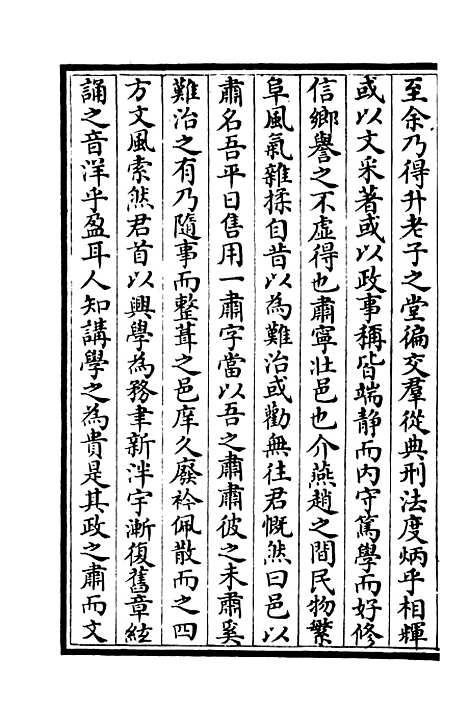 至余乃得升老子之堂徧交羣從典刑法度炳乎相輝
或以文采著或以政事稱皆端静而内守篤學而好修
信鄉譽之不虛得也肅寧壯邑也介燕趙之間民物繁
阜風氣雜揉自昔以為難治或勸無往君慨然曰邑以
肅名吾平日售用一肅字當以吾之肅肅彼之未肅奚
難治之有乃隨事而整葺之邑庠久廢衿佩散而之四
方文風索然君首以興學為務聿新泮宇漸復舊章絃
誦之音洋乎盈耳人知講學之為貴是其政之肅而文